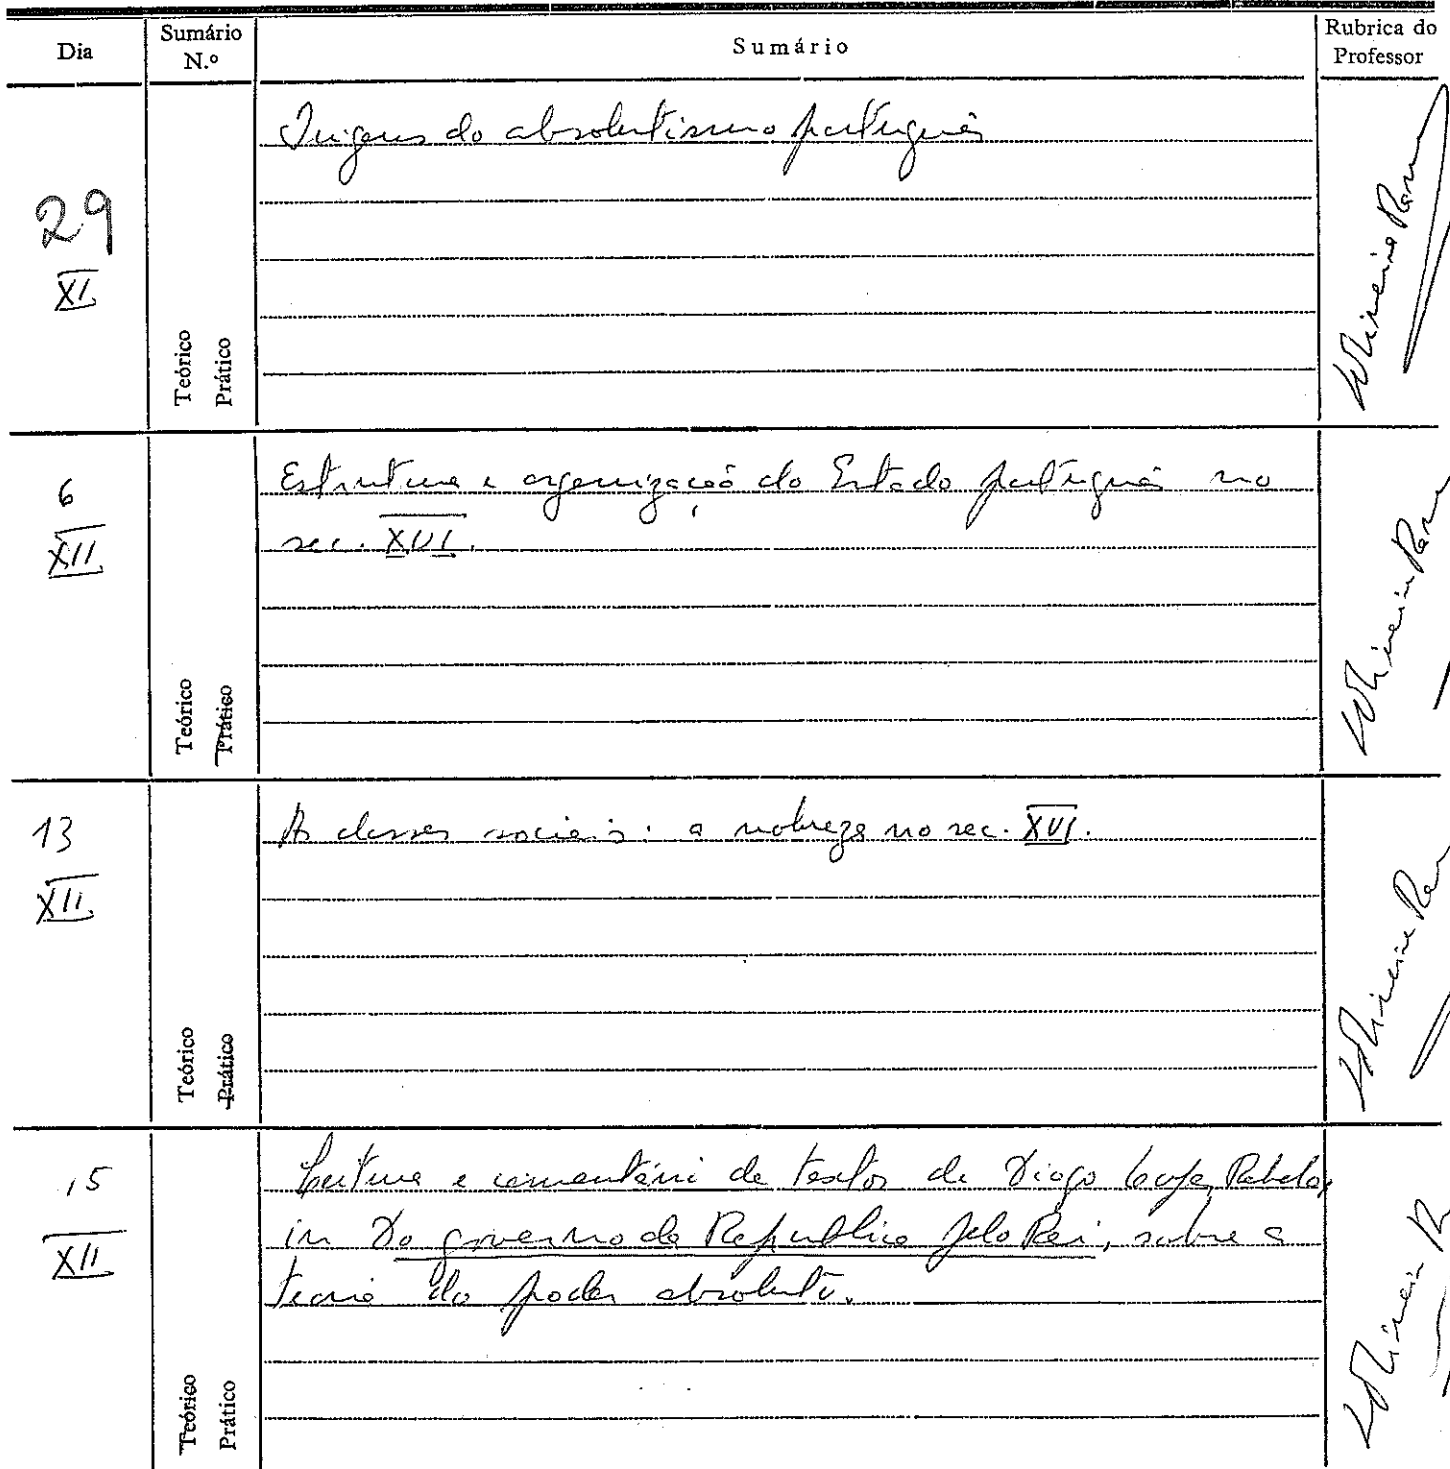 Dia
Sumário
N.º
Sumário
Rubrica do
Professor
29
XI
Teórico
Prático
Origens do absolutismo português
6
XII
Teórico
Prático
Estrutura e organização do Estado português no
sec. XVI.
13
XII
Teórico
Prático
As classes sociais: a nobreza no sec. XVI.
15
XII
Teórico
Prático
Leitura e comentário de textos de Diogo Lopes Rebelo,
in Do governo da Republica pelo Rei, sobre a
teoria do poder absoluto.